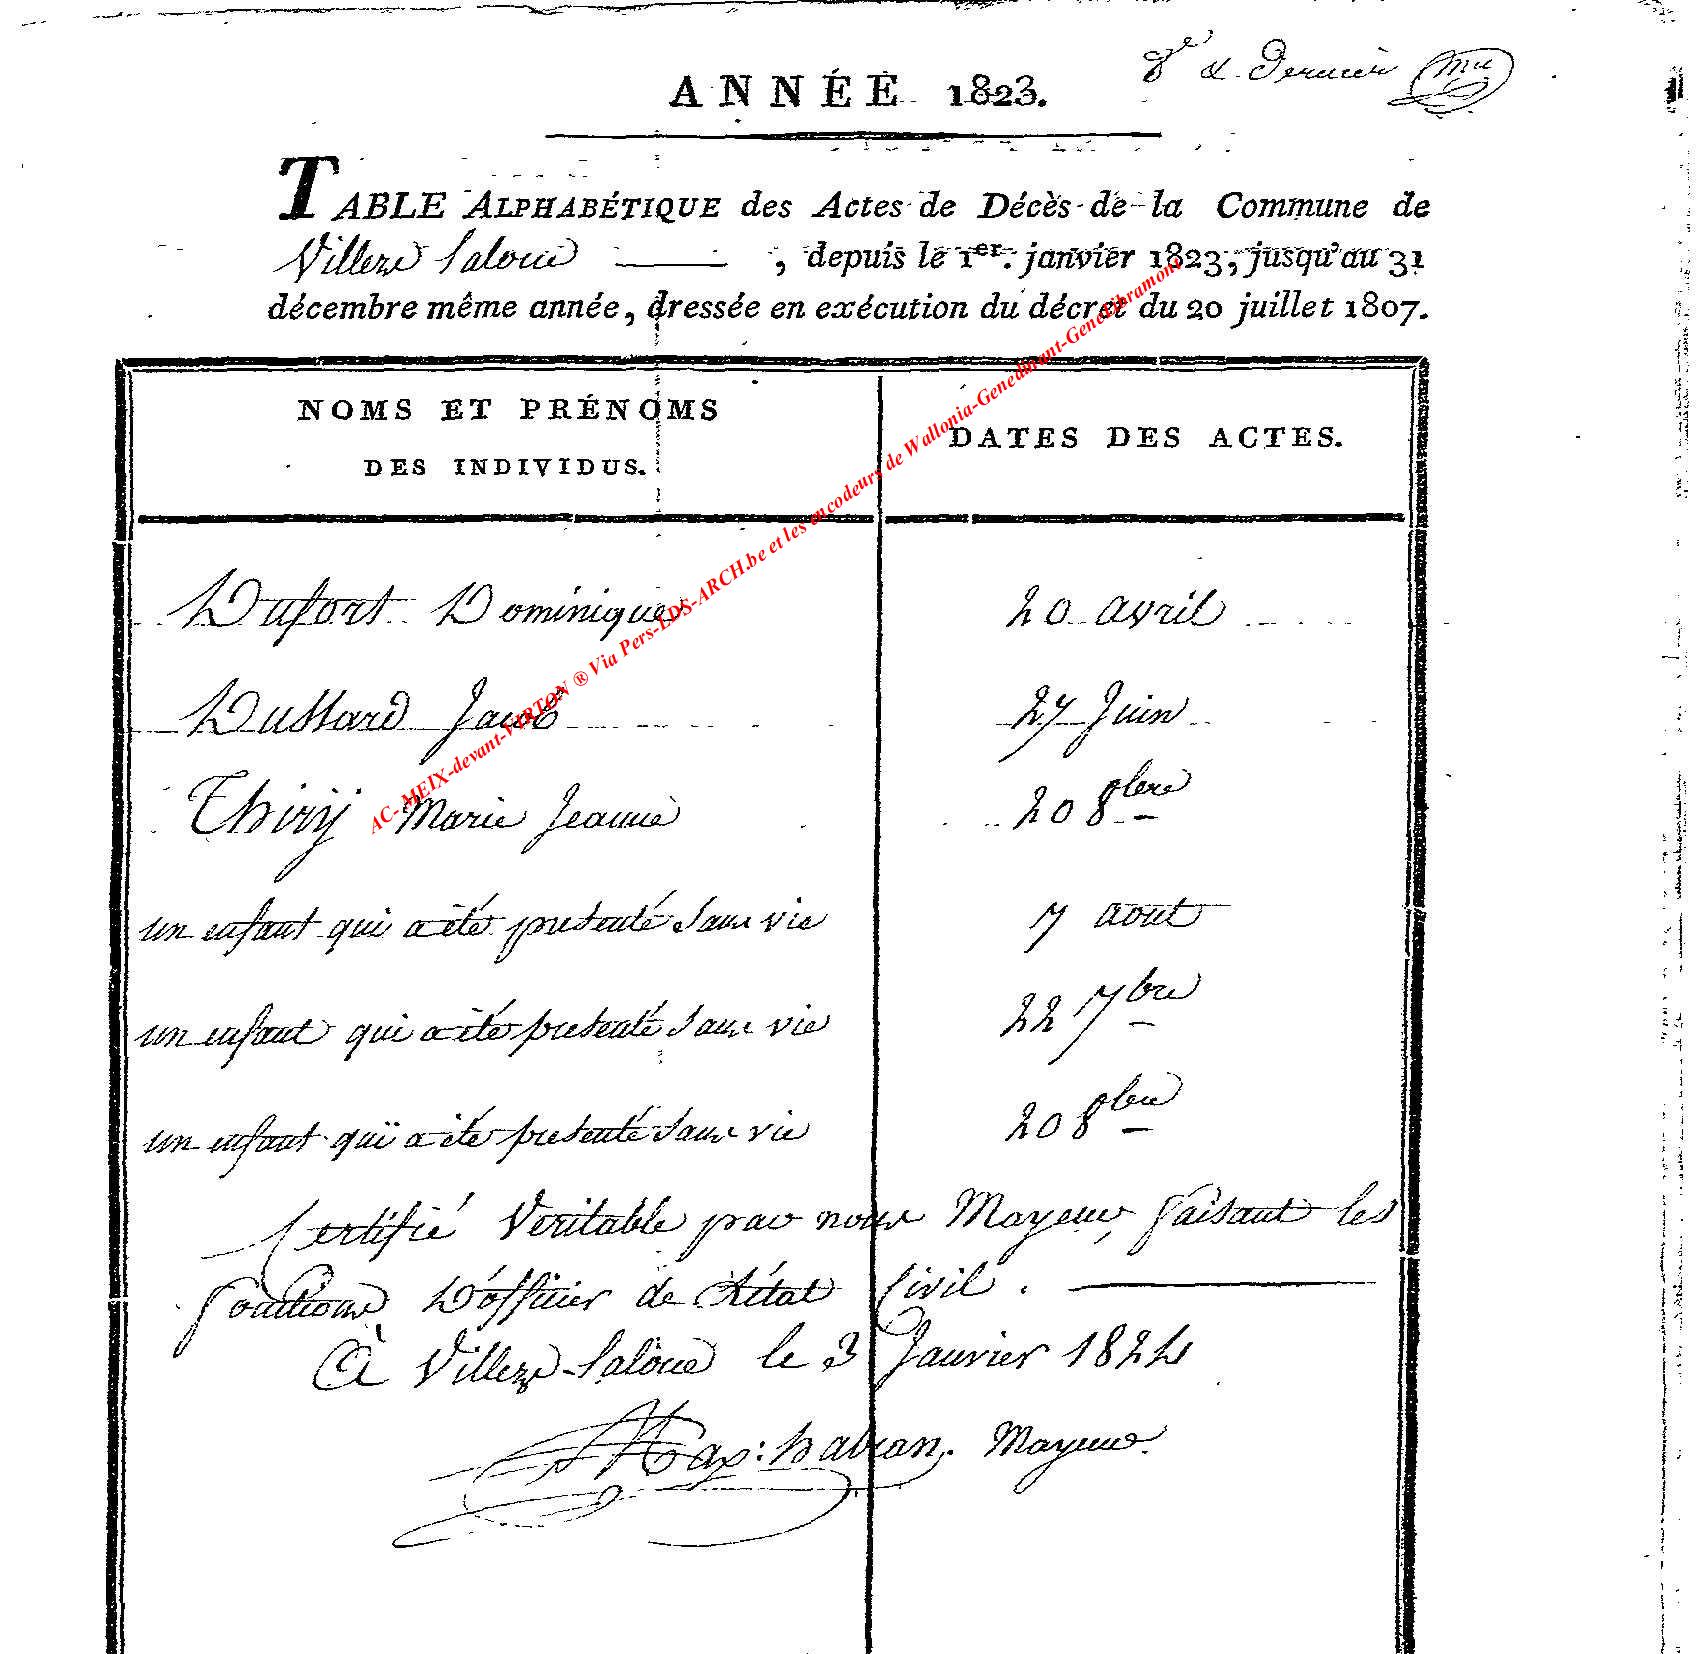 8e & Dernier
ANNÉE 1823.
TABLE ALPHABÉTIQUE des Actes de Décès de la Commune de
Villers Laloue, depuis le 1er. janvier 1823, jusqu'au 31
décembre même année, dressée en exécution du décret du 20 juillet 1807.
NOMS ET PRÉNOMS
DES INDIVIDUS.
DATES DES ACTES.
Dufort Dominique 20 avril
Dussard Jacob 27 Juin
Thirÿ Marie Jeanne 20 8bre
un enfant qui a été presenté Sans vie 7 aout
un enfant qui a été presenté Sans vie 22 7bre
un enfant quï a été presenté Sans vie 20 8bre
Certifié Veritable par nous Mayeur, faisant les
fonctions D'officier de l'état Civil.
à Villers Laloue le 3 Janvier 1824
habran. Mayeur.
AC-MEIX-devant-VIRTON ® Via Pers-LDS-ARCH.be et les encodeurs de Wallonia-Genedinant-Genelibramont